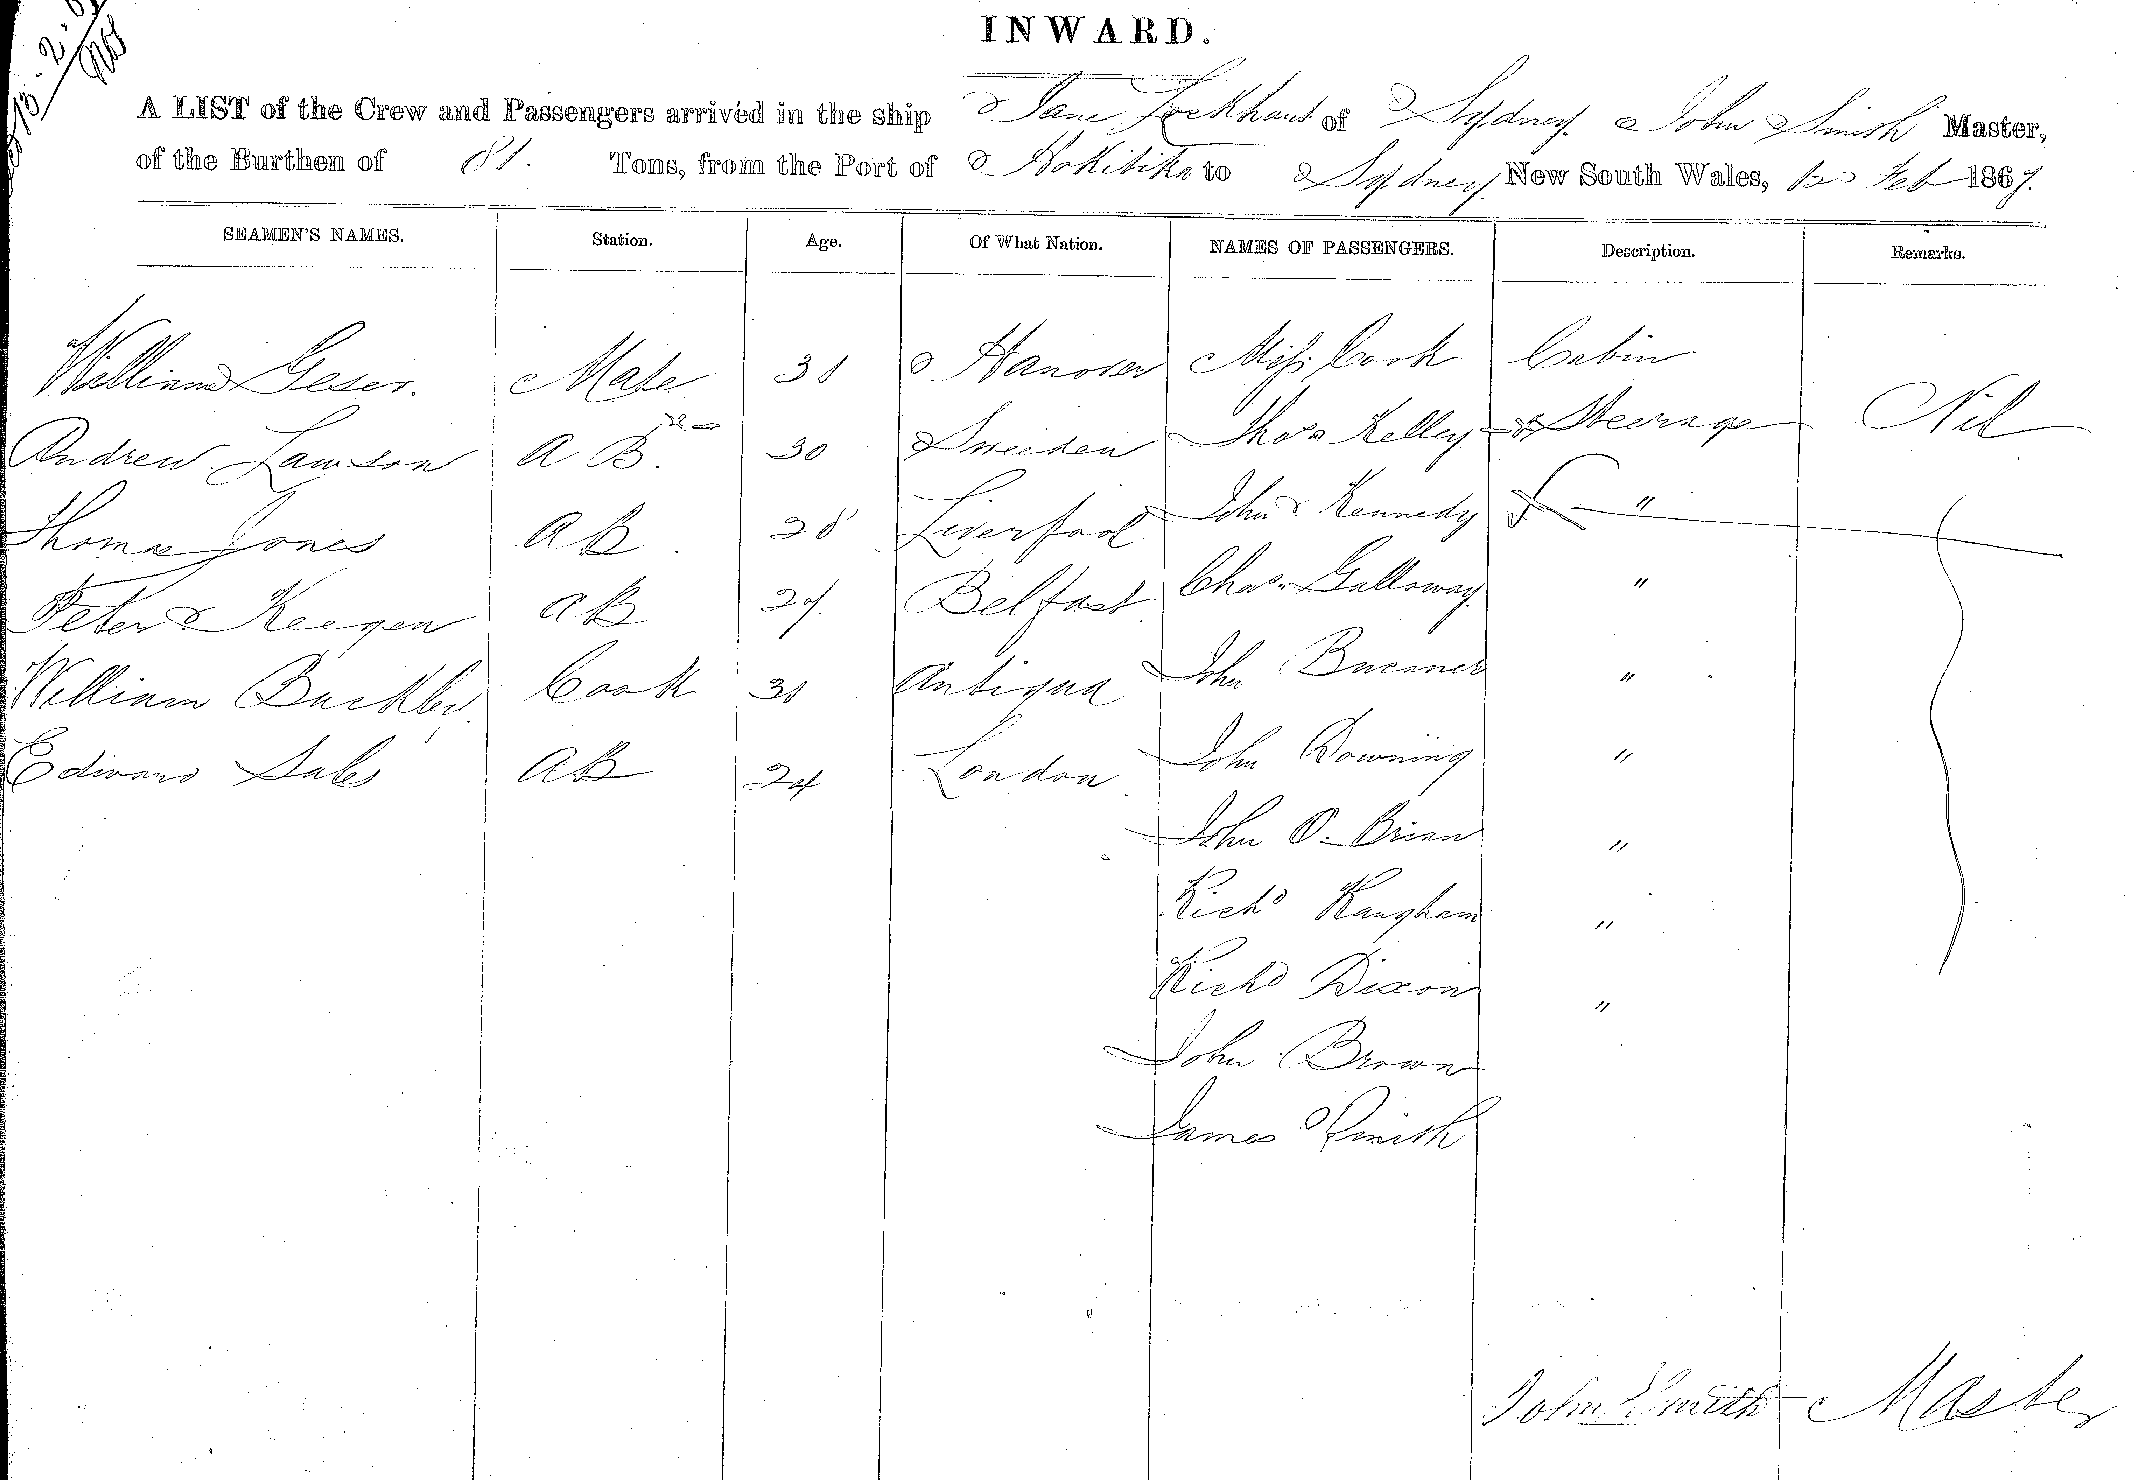 INWARD.
A LIST of the Crew and Passengers arrived in the ship Jane Lockhart of Sydney John Smith Master,
of the Burthen of 81. Tons, from the Port of Hokitika to Sydney New South Wales, 12 Feb 1867.
SEAMEN'S NAMES. Station. Age. Of What Nation. NAMES OF PASSENGERS. Description. Remarks.
William Geser. Mate 31 Hanover Miss Cook Cabin
Andrew Lawson A B. 30 Sweeden Thos Kelley Steerage Nil
Thomas Jones A B 28 Liverpool John Kennedy "
Peter Keegen A B 27 Belfast Chas Galloway "
William Buckley Cook 31 Antigua John "
Edward Sales A B 24 London John Downing "
John O. Brian "
Richd "
Richd Dixon "
John Brown
James Smith
John Smith Master